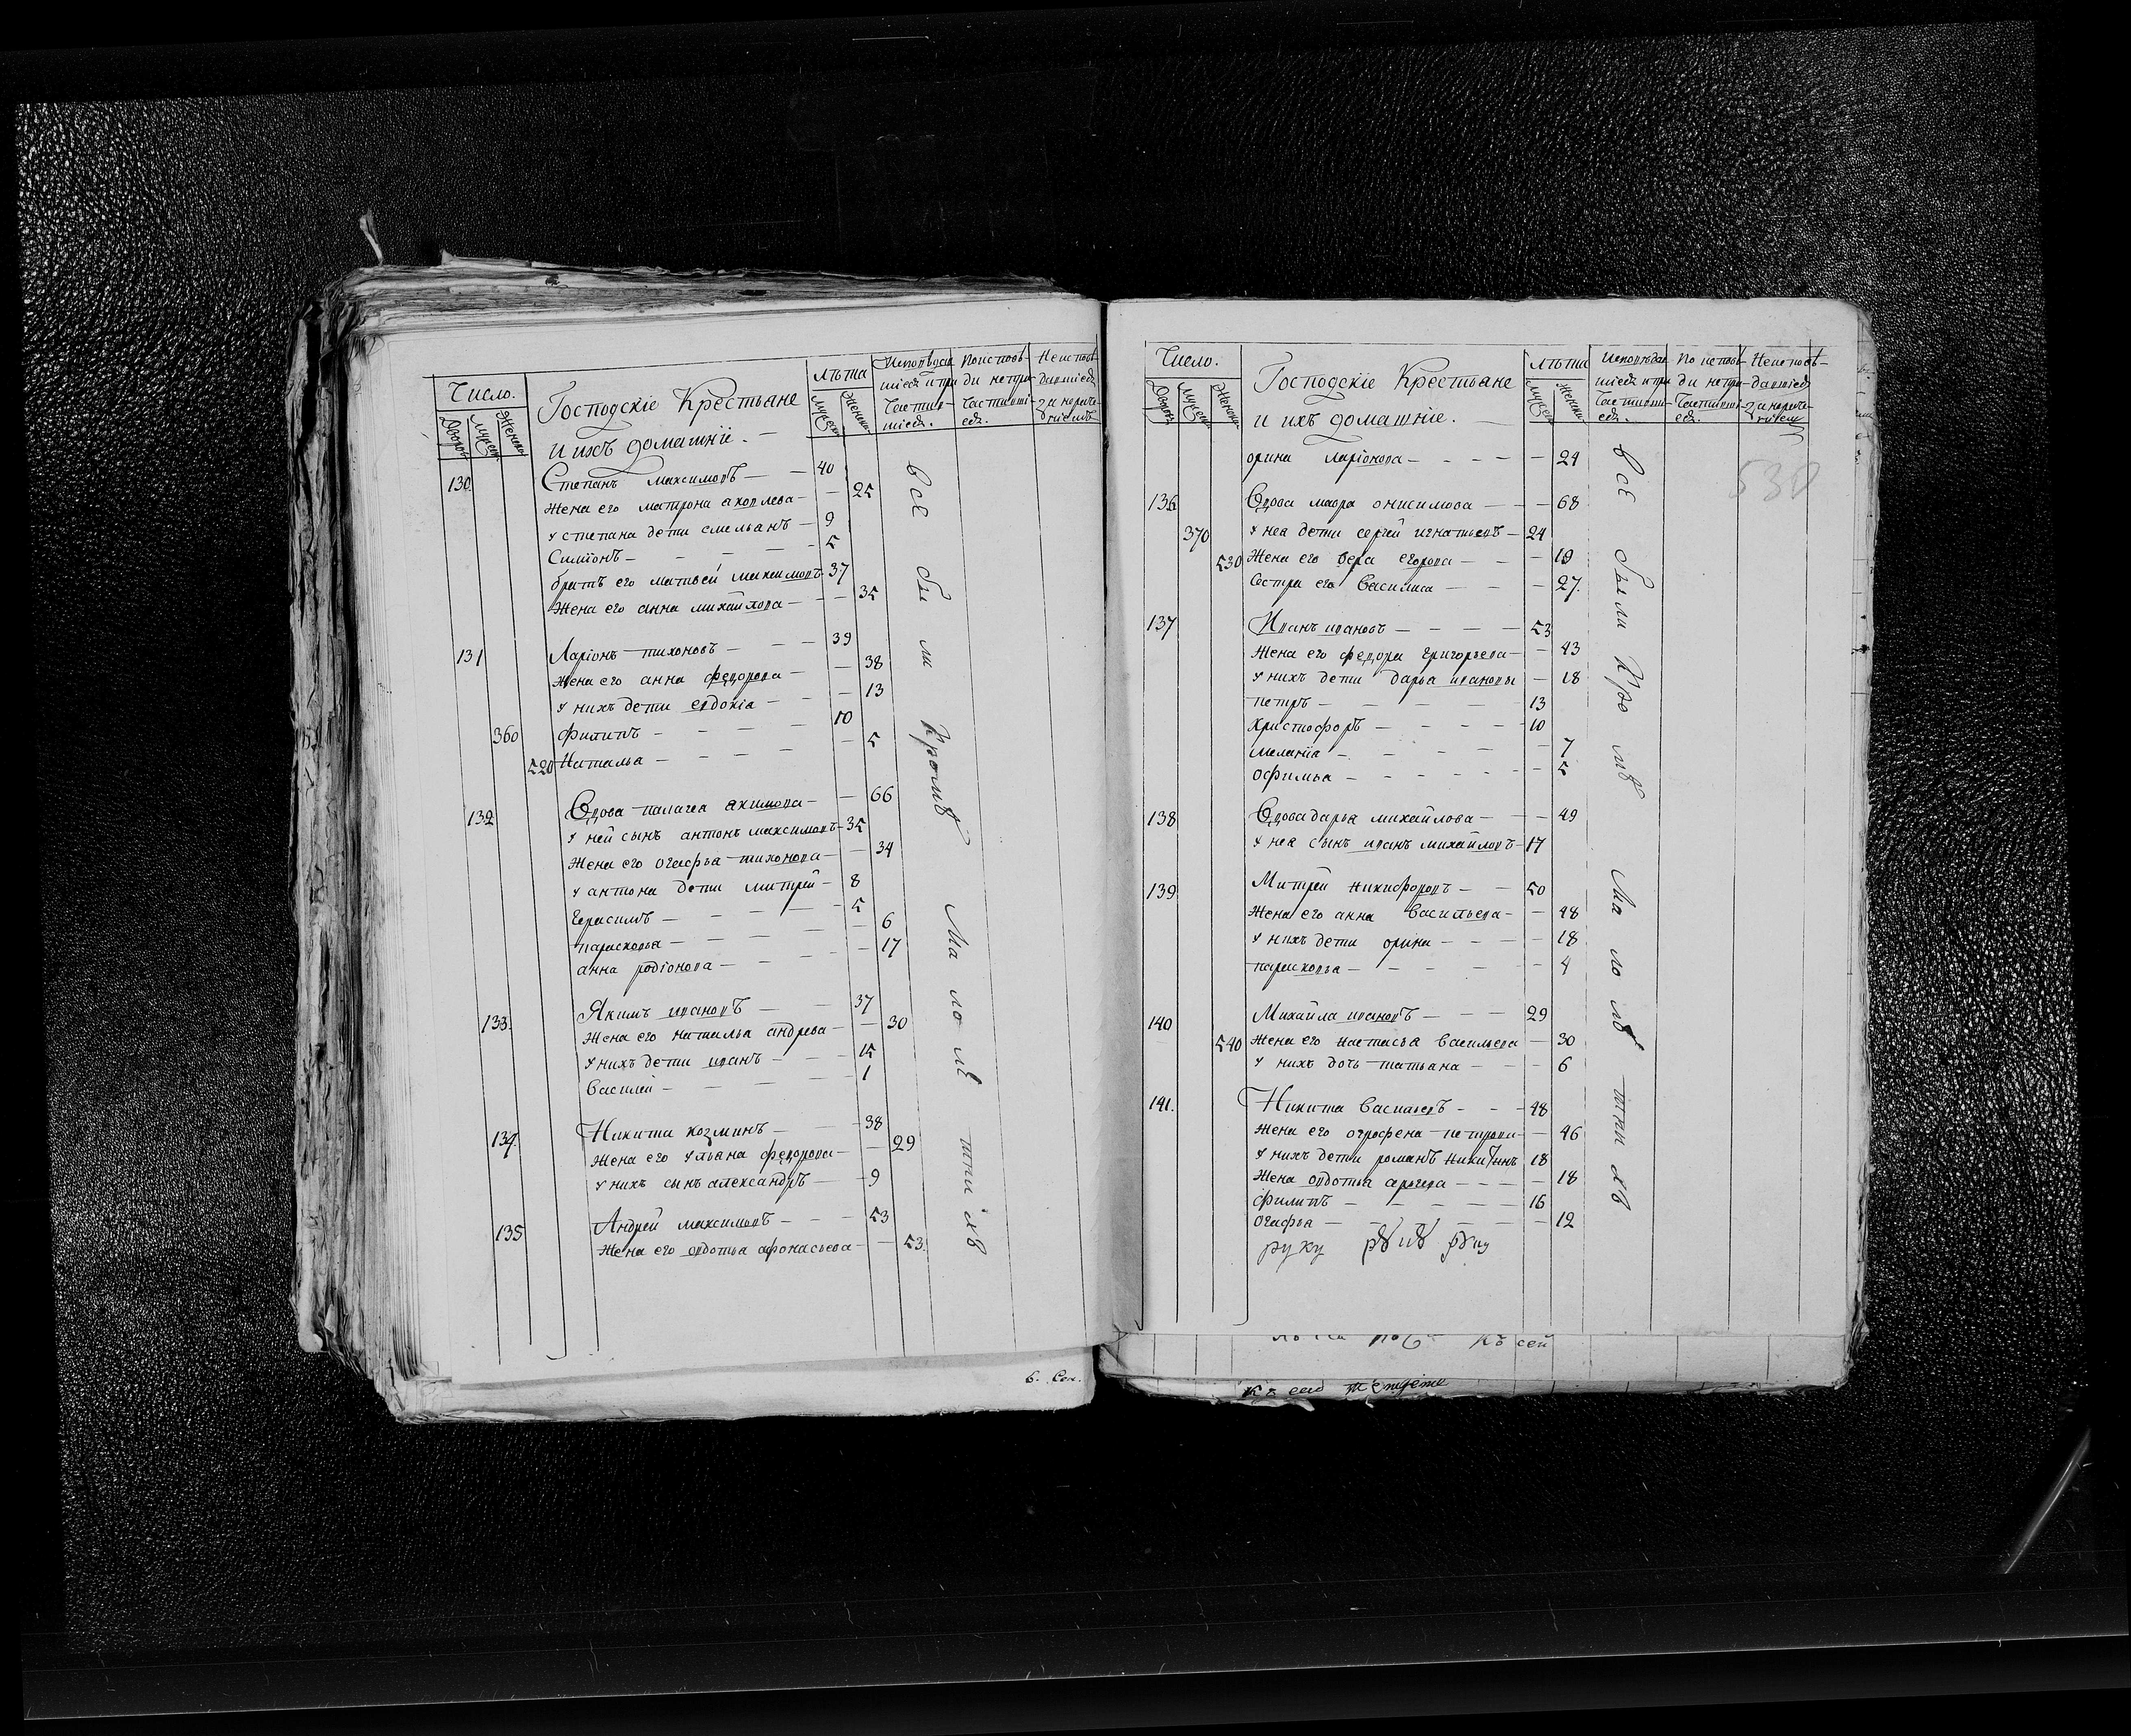 Число.
Дворовъ
Мужеск.
Женска
Господскіе Крестьяне
и ихъ домашніе.
Лѣта
Мужеск
Женска
Исповѣдав-
шіеся и при
частив-
шіеся.
По исповѣ-
ди непри-
частивші-
еся.
Неисповѣ-
давшіеся
за нерачe-
ніемъ
130. Степанъ максимовъ — 40
Жена его матрона аковлева — 25
у степана дети емельанъ — 9
Симіонъ — 5
братъ его матвей максимовъ 37
Жена его анна михайлова — 35
131 Ларіонъ тихоновъ — 39
Жена его анна федорова — 38
у нихъ дети евдокіа — 13
360 филипъ — 10
520 Наталья — 5
132 Вдова палагеа акимова — 66
у ней сынъ антонъ максимовъ 35
Жена его огафьа тихонова — 34
у антона дети митрей — 8
Герасимъ — 5
парасковьа — 6
анна родіонова — 17
133. Якимъ ивановъ — 37
Жена его натальа андрева — 30
у нихъ дети иванъ — 15
Василей — 1
134. Никита козминъ — 38
Жена его ульана федорова — 29
у нихъ сынъ александръ — 9
135 Андрей максимовъ — 53
Жена его овдотьа афонасьева — 53.
всѣ были Кромѣ Малолѣтнихъ
6. Сел.
Число.
Дворовъ
Мужеск
Женска
Господскіе Крестьяне
и ихъ домашніе.
Лѣта
Мужеск
Женска
Исповѣдав
шіеся и при
частивши-
еся.
По исповѣ-
ди непри-
частивші-
еся.
Неисповѣ-
давшіеся
за нераче-
ніемъ
530
орина ларіонова — 24
136 Вдова мавра онисимова — 68
370 у неа дети сергей игнатьевъ — 24
530 Жена его вера егорова — 19
сестра его василиса — 27.
137 Иванъ ивановъ — 53
Жена его федора григорьева — 43
у нихъ дети дарьа ивановы — 18
петръ — 13
христофоръ — 10
меланіа — 7
офимьа — 5
138 Вдова дарьа михайлова — 49
у неа сынъ иванъ михайловъ — 17
139 Митрей никифоровъ — 50
Жена его анна васильева — 48
у нихъ дети орина — 18
парасковьа — 4
140 Михайла ивановъ — 29
540 Жена его настасьа васильева — 30
у нихъ дочь татьяна — 6
141. Никита васильевъ — 48
Жена его огрофена петрова — 46
у нихъ дети романъ никитинъ 18
Жена овдотьа сергева — 18
филипъ — 16
огафьа — 12
руку
всѣ были Кромѣ Малолѣтнихъ
къ сей